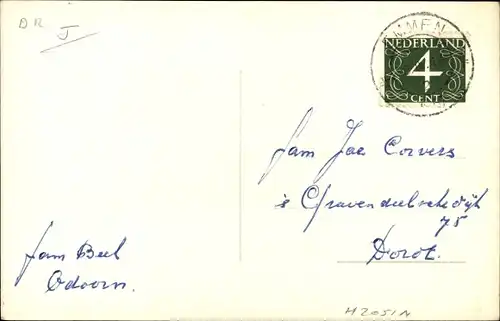 DR
J
EMMEN
NEDERLAND
4
CENT
fam Jac Corvers
's Gravendeelschedijk
75
Dordt.
fam Beel
Odoorn.
H2051N